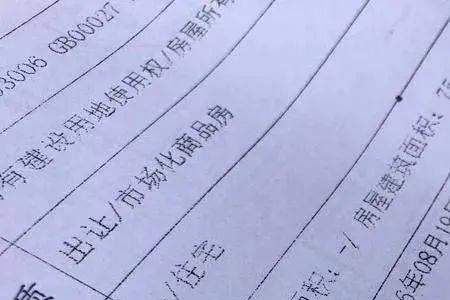 3006 GB00027
有建设用地使用权/房屋所有
出让/市场化商品房
/住宅
面积：-/房屋建筑面积：75
年08月19